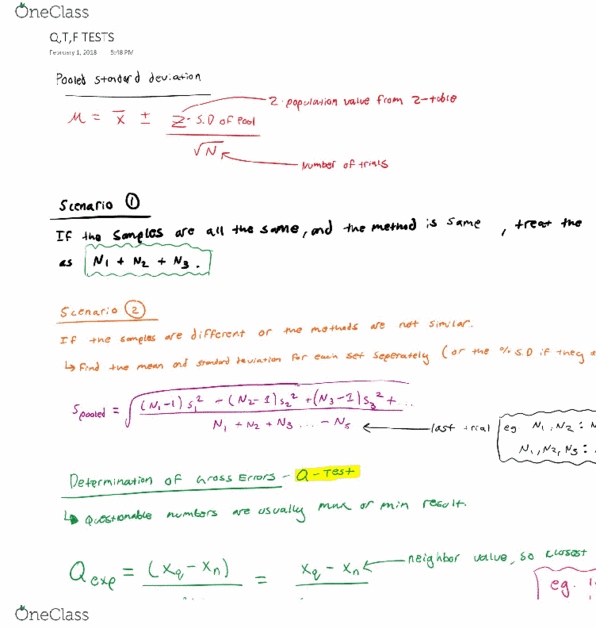 OneClass
Q,T,F TESTS
February 1, 2018 5:48 PM
Pooled standard deviation
μ = x̄ ± z · S.D of Pool / √N
z population value from z-table
Number of trials
Scenario ①
If the samples are all the same, and the method is same, treat the
as N₁ + N₂ + N₃.
Scenario ②
If the samples are different or the methods are not similar.
↳ Find the mean and standard deviation for each set seperately (or the % S.D if they a
S pooled = √((N₁-1)s₁² - (N₂-1)s₂² + (N₃-1)s₃² + ... / N₁ + N₂ + N₃ ... - Ns)
last trial
eg N₁, N₂ :
N₁, N₂, N₃ :
Determination of Gross Errors - Q-Test
↳ Questionable numbers are usually max or min result.
Q exp = (xq - xn) / = xq - xn
neighbor value, so closest
eg.
OneClass